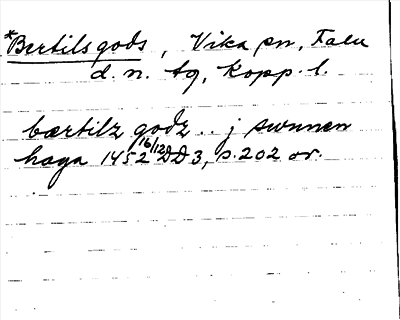 *Bertilsgods, Vika sn, Falu
d. n. tg, Kopp. l.
bærtilz godz .. j swnnen
haga 1452 16/12 DD 3, s. 202 or.